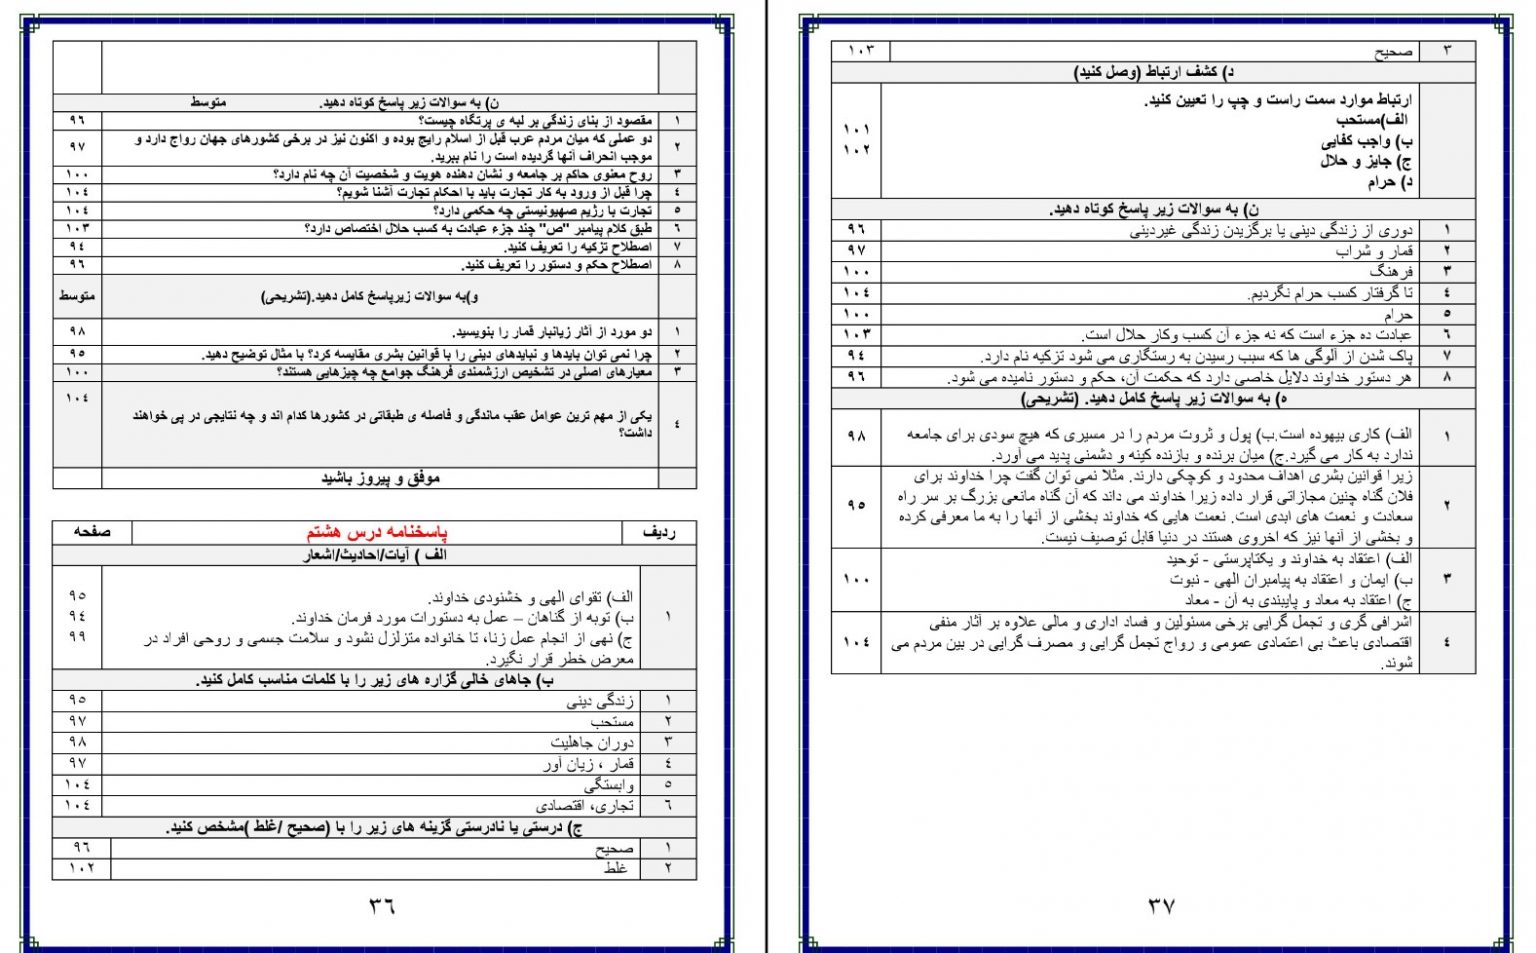 ن) به سوالات زیر پاسخ کوتاه دهید. متوسط
۱ مقصود از بنای زندگی بر لبه ی پرتگاه چیست؟ ۹۶
۲ دو عملی که میان مردم عرب قبل از اسلام رایج بوده و اکنون نیز در برخی کشورهای جهان رواج دارد و
موجب انحراف آنها گردیده است را نام ببرید. ۹۷
۳ روح معنوی حاکم بر جامعه و نشان دهنده هویت و شخصیت آن چه نام دارد؟ ۱۰۰
٤ چرا قبل از ورود به کار تجارت باید با احکام تجارت آشنا شویم؟ ۱۰٤
٥ تجارت با رژیم صهیونیستی چه حکمی دارد؟ ۱۰٤
٦ طبق کلام پیامبر "ص" چند جزء عبادت به کسب حلال اختصاص دارد؟ ۱۰۳
۷ اصطلاح تزکیه را تعریف کنید. ۹٤
۸ اصطلاح حکم و دستور را تعریف کنید. ۹٦
و)به سوالات زیرپاسخ کامل دهید.(تشریحی) متوسط
۱ دو مورد از آثار زیانبار قمار را بنویسید. ۹۸
۲ چرا نمی توان بایدها و نبایدهای دینی را با قوانین بشری مقایسه کرد؟ با مثال توضیح دهید. ۹٥
۳ معیارهای اصلی در تشخیص ارزشمندی فرهنگ جوامع چه چیزهایی هستند؟ ۱۰۰
٤ یکی از مهم ترین عوامل عقب ماندگی و فاصله ی طبقاتی در کشورها کدام اند و چه نتایجی در پی خواهند
داشت؟ ۱۰٤
موفق و پیروز باشید
ردیف پاسخنامه درس هشتم صفحه
الف ) آیات/احادیث/اشعار
۱ الف) تقوای الهی و خشنودی خداوند. ۹٥
ب) توبه از گناهان – عمل به دستورات مورد فرمان خداوند. ۹٤
ج) نهی از انجام عمل زنا، تا خانواده متزلزل نشود و سلامت جسمی و روحی افراد در ۹۹
معرض خطر قرار نگیرد.
ب) جاهای خالی گزاره های زیر را با کلمات مناسب کامل کنید.
۱ زندگی دینی ۹٥
۲ مستحب ۹۷
۳ دوران جاهلیت ۹۸
٤ قمار ، زیان آور ۹۷
٥ وابستگی ۱۰٤
٦ تجاری، اقتصادی ۱۰٤
ج) درستی یا نادرستی گزینه های زیر را با (صحیح /غلط )مشخص کنید.
۱ صحیح ۹٦
۲ غلط ۱۰۲
۳٦
۳ صحیح ۱۰۳
د) کشف ارتباط (وصل کنید)
ارتباط موارد سمت راست و چپ را تعیین کنید.
الف)مستحب ۱۰۱
ب) واجب کفایی ۱۰۲
ج) جایز و حلال
د) حرام
ن) به سوالات زیر پاسخ کوتاه دهید.
۱ دوری از زندگی دینی یا برگزیدن زندگی غیردینی ۹٦
۲ قمار و شراب ۹۷
۳ فرهنگ ۱۰۰
٤ تا گرفتار کسب حرام نگردیم. ۱۰٤
٥ حرام ۱۰۰
٦ عبادت ده جزء است که نه جزء آن کسب وکار حلال است. ۱۰۳
۷ پاک شدن از آلوگی ها که سبب رسیدن به رستگاری می شود تزکیه نام دارد. ۹٤
۸ هر دستور خداوند دلایل خاصی دارد که حکمت آن، حکم و دستور نامیده می شود. ۹٦
ه) به سوالات زیر پاسخ کامل دهید. (تشریحی)
۱ الف) کاری بیهوده است.ب) پول و ثروت مردم را در مسیری که هیچ سودی برای جامعه ۹۸
ندارد به کار می گیرد.ج) میان برنده و بازنده کینه و دشمنی پدید می آورد.
زیرا قوانین بشری اهداف محدود و کوچکی دارند. مثلا نمی توان گفت چرا خداوند برای
۲ فلان گناه چنین مجازاتی قرار داده زیرا خداوند می داند که آن گناه مانعی بزرگ بر سر راه ۹٥
سعادت و نعمت های ابدی است. نعمت هایی که خداوند بخشی از آنها را به ما معرفی کرده
و بخشی از آنها نیز که اخروی هستند در دنیا قابل توصیف نیست.
الف) اعتقاد به خداوند و یکتاپرستی - توحید
۳ ب) ایمان و اعتقاد به پیامبران الهی - نبوت ۱۰۰
ج) اعتقاد به معاد و پایبندی به آن - معاد
اشرافی گری و تجمل گرایی برخی مسئولین و فساد اداری و مالی علاوه بر آثار منفی
٤ اقتصادی باعث بی اعتمادی عمومی و رواج تجمل گرایی و مصرف گرایی در بین مردم می ۱۰٤
شوند.
۳۷